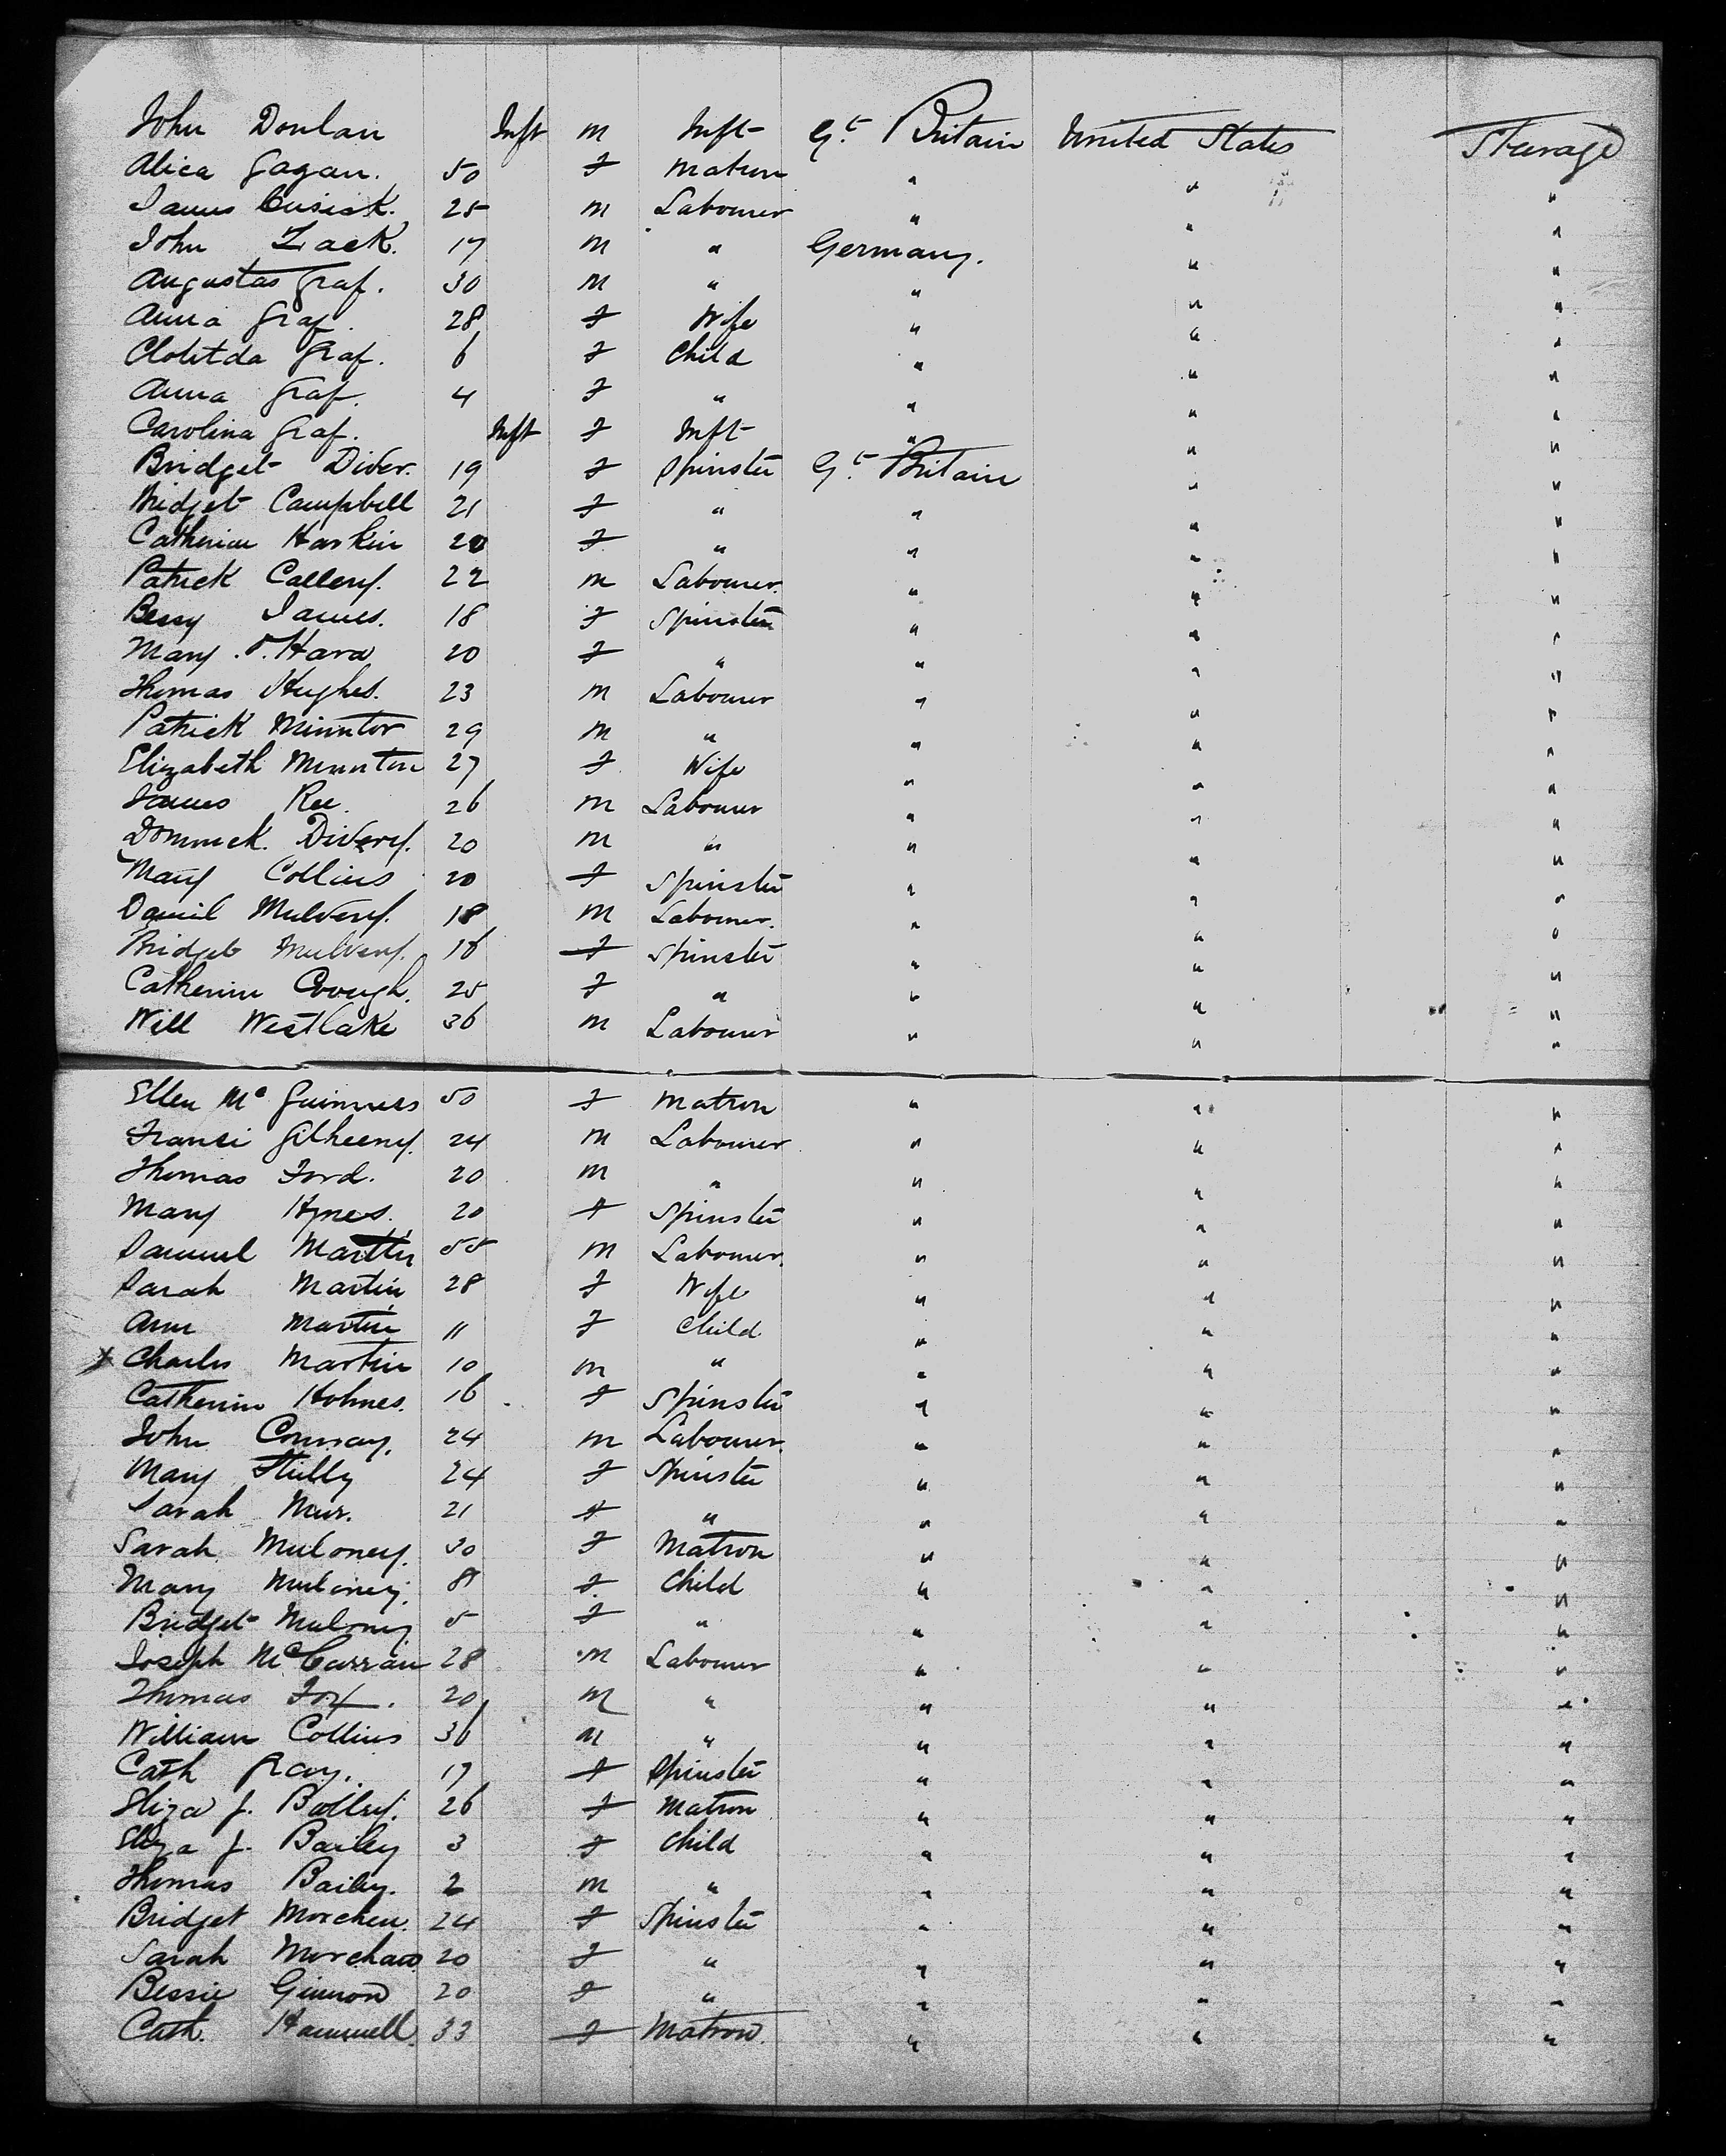 John Donlan Inft m Inft Gt. Britain United States Steerage
Alice Gagan. 50 f Matron " " "
James Cusick. 25 m Labourer " " "
John Zack. 17 m " Germany. " "
Augustas Graf. 30 m " " " "
Anna Graf. 28 f Wife " " "
Clotitda Graf. 6 f Child " " "
Anna Graf. 4 f " " " "
Carolina Graf. Inft f Inft " " "
Bridget Diver. 19 f Spinster Gt. Britain " "
Bridget Campbell 21 f " " " "
Catherine Harkin 20 f " " " "
Patrick Callery. 22 m Labourer. " " "
Bessy James. 18 f Spinster " " "
Mary O'Hara 20 f " " " "
Thomas Hughes. 23 m Labourer " " "
Patrick 29 m " " " "
Elizabeth 27 f Wife " " "
James Ree. 26 m Labourer " " "
Dominick. Divery. 20 m " " " "
Mary Collins 20 f Spinster " " "
Daniel Mulvery. 18 m Labourer. " " "
Bridget Mulvery. 16 f Spinster " " "
Catherine 25 f " " " "
Will Westlake 36 m Labourer " " "
Ellen Mc Guinness 50 f Matron " " "
Gilheeny. 24 m Labourer " " "
Thomas Ford. 20 m " " " "
Mary Hynes. 20 f Spinster " " "
Samuel Martin 55 m Labourer. " " "
Sarah Martin 28 f Wife " " "
Ann Martin 11 f Child " " "
x Charles Martin 10 m " " " "
Catherine Holmes. 16 f Spinster " " "
John Conway. 24 m Labourer. " " "
Mary 24 f Spinster " " "
Sarah 21 f " " " "
Sarah Muloney. 30 f Matron " " "
Mary Muloney. 8 f Child " " "
Bridget Muloney 5 f " " " "
Joseph McCarran 28 m Labourer " " "
Thomas Fox. 20 m " " " "
William Collins 36 m " " " "
Cath Gray. 17 f Spinster " " "
Eliza J. Bailey. 26 f Matron " " "
Eliza J. Bailey 3 f Child " " "
Thomas Bailey. 2 m " " " "
Bridget 24 f Spinster " " "
Sarah 20 f " " " "
Bessie 20 f " " " "
Cath. Hammell. 33 f Matron. " " "